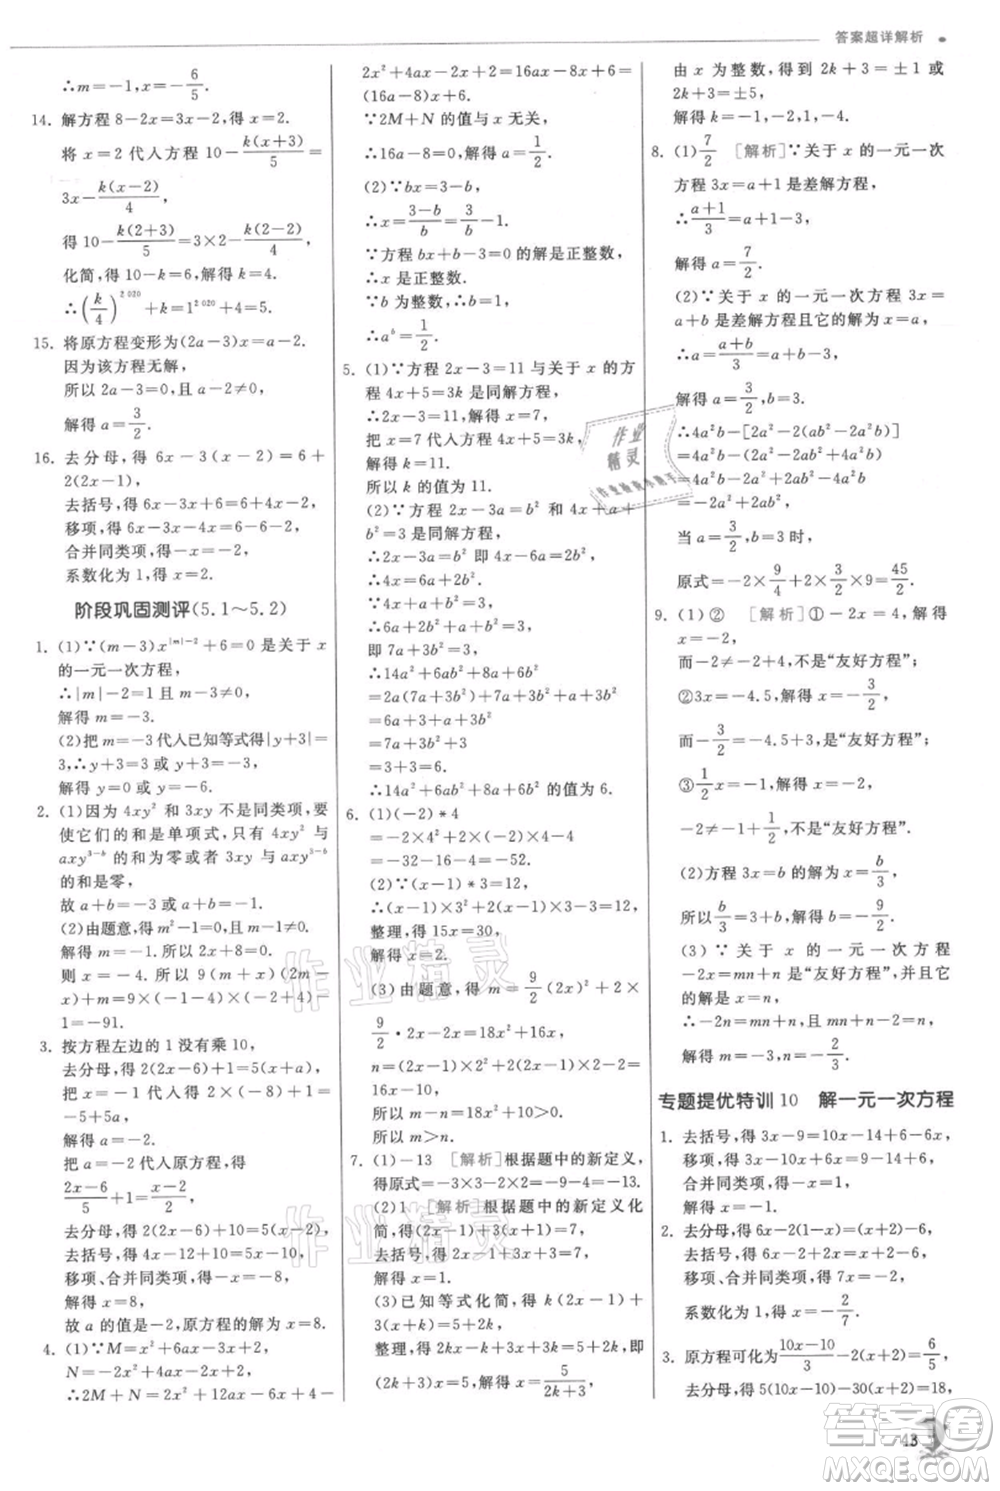 答案超详解析
∴m=-1,x=-6/5.
14. 解方程8-2x=3x-2,得x=2.
将x=2代入方程10-k(x+3)/5=
3x-k(x-2)/4,
得10-k(2+3)/5=3×2-k(2-2)/4,
化简,得10-k=6,解得k=4.
∴(k/4)^2 020+k=1^2 020+4=5.
15. 将原方程变形为(2a-3)x=a-2.
因为该方程无解,
所以2a-3=0且a-2≠0,
解得a=3/2.
16. 去分母,得6x-3(x-2)=6+
2(2x-1),
去括号,得6x-3x+6=6+4x-2,
移项,得6x-3x-4x=6-6-2,
合并同类项,得-x=-2,
系数化为1,得x=2.
阶段巩固测评(5.1~5.2)
1. (1)∵(m-3)x^|m|-2+6=0是关于x
的一元一次方程,
∴|m|-2=1且m-3≠0,
解得m=-3.
(2)把m=-3代入已知等式得|y+3|=
3,∴y+3=3或y+3=-3,
解得y=0或y=-6.
2. (1)因为4xy²和3xy不是同类项,要
使它们的和是单项式,只能4xy²与
axy^3-b的和为零或者3xy与axy^3-b
的和是零,
故a=-4,b=1或a=-3,b=2.
(2)由题意,得m²-1=0且m-1≠0,
解得m=-1.所以2x+8=0.
则x=-4.所以9(5x+m)(2m-
x)+m=9×(-4-1)×(-2+4)-
1=-91.
3. 按方程左边的1没有乘10,
去分母,得2(2x-6)+1=5(x+a),
把x=1代入,得2×(-4)+1=
5+5a,
解得a=1.
把a=1代入原方程,得
(2x-6)/5+1=(x+a)/2,
去分母,得2(2x-6)+10=5(x+1),
去括号,得4x-12+10=5x+5,
移项、合并同类项,得-x=7,
解得x=8,
故a的值是-1,原方程的解为x=8.
4. (1)∵M=x²+6ax-3x+2,
N=-2x²+4ax-2x+2,
∴2M+N=2x²+12ax-6x+4-
2x²+4ax-2x+2=16ax-8x+6=
(16a-8)x+6.
∵2M+N的值与x无关,
∴16a-8=0,解得a=1/2.
(2)∵bx+b-3=0,
∴x=(3-b)/b=3/b-1.
∵方程bx+b-3=0的解是正整数,
∴x是正整数.
∵b为整数,∴b=1,
∴a^b=1/2.
5. (1)∵方程2x-3=11与关于x的方
程4x+5=3k是同解方程,
∴2x-3=11,解得x=7,
把x=7代入方程4x+5=3k,
解得k=11.
所以k的值为11.
(2)∵方程2x-3a=b²和4x+a+
b²=3是同解方程,
∴2x-3a=b²即4x-6a=2b²,
∴4x=6a+2b²,
∴6a+2b²+a+b²=3,
即7a+3b²=3,
∴14a²+6ab²+7a+9b²+6b²
=2a(7a+3b²)+(7a+3b²)+6b²
=6a+3+6b²
=7a+3+3b²
=3+3=6,
∴14a²+6ab²+8a+6b²的值为6.
6. (1)(-2)*4
=-2×4²+2×(-2)×4-4
=-32-16-4=-52.
(2)∵(-1)*3=12,
∴(x-1)×3²+2(x-1)×3-3=12,
整理,得15x=30,
解得x=2.
(3)由题意,得m=9/2(2x)²+2×
9/2·2x-2x=18x²+16x,
n=(2x-1)×3²+2(2x-1)×3-3
=18x²-9+12x-6-3=30x-18,
所以m-n=18x²-14x+18>0.
所以m>n.
7. (1)-13 [解析]根据题中的新定义,
得原式=-3×3-2×2=-9-4=-13.
(2)1 [解析]根据题中的新定义化
简,得2(2x-1)+3(x+1)=8,
去括号,得4x-2+3x+3=8,
移项、合并同类项,得7x=7,
解得x=1.
(3)已知等式化简,得k(2x-1)+
3(x+k)=5+2k,
整理,得(2k+3)x=5,解得x=
5/(2k+3),
由x为整数,得到2k+3=±1或
2k+3=±5,
解得k=-1,-2,1,-4.
8. (1)7/2 [解析]∵关于x的一元一次
方程3x=a+1是差解方程,
∴(a+1)/3=a+1-3,
解得a=7/2.
(2)∵关于x的一元一次方程3x=
a+b是差解方程且它的解为x=a,
∴a=(a+b)/3=a+b-3.
解得a=3/2,b=3.
∴4a²b-[2a²-2(ab²-2a²b)]
=4a²b-(2a²-2ab²+4a²b)
=4a²b-2a²+2ab²-4a²b
=-2a²+2ab².
当a=3/2,b=3时,
原式=-2×9/4+2×3/2×9=45/2.
9. (1)② [解析]①-2x=4,解得
x=-2,
而-2≠-2+4,不是“友好方程”;
②3x=-4.5,解得x=-3/2,
而-3/2=-4.5+3,是“友好方程”;
③1/2x=-1,解得x=-2,
-2≠-1+1/2,不是“友好方程”.
(2)方程3x=b的解为x=b/3,
所以b/3=3+b,解得b=-9/2.
(3)∵关于x的一元一次方程
-2x=mn+n是“友好方程”,并且它
的解是x=n,
∴-2n=mn+n,且mn+n-2=n,
解得m=-3,n=-2/3.
专题提优特训10 解一元一次方程
1. 去括号,得3x-9=10x-14+6-6x,
移项,得3x-10x+6x=-14+6+9,
合并同类项,得-x=1,
解得x=-1.
2. 去分母,得6x-2(1-x)=6-(x+2),
去括号,得6x-2+2x=6-x-2,
移项、合并同类项,得9x=6,
系数化为1,得x=2/7.
3. 原方程可化为(10x-10)/3-(10x-20)/2=6/5,
去分母,得5(10x-10)-30(x+2)=18,
43